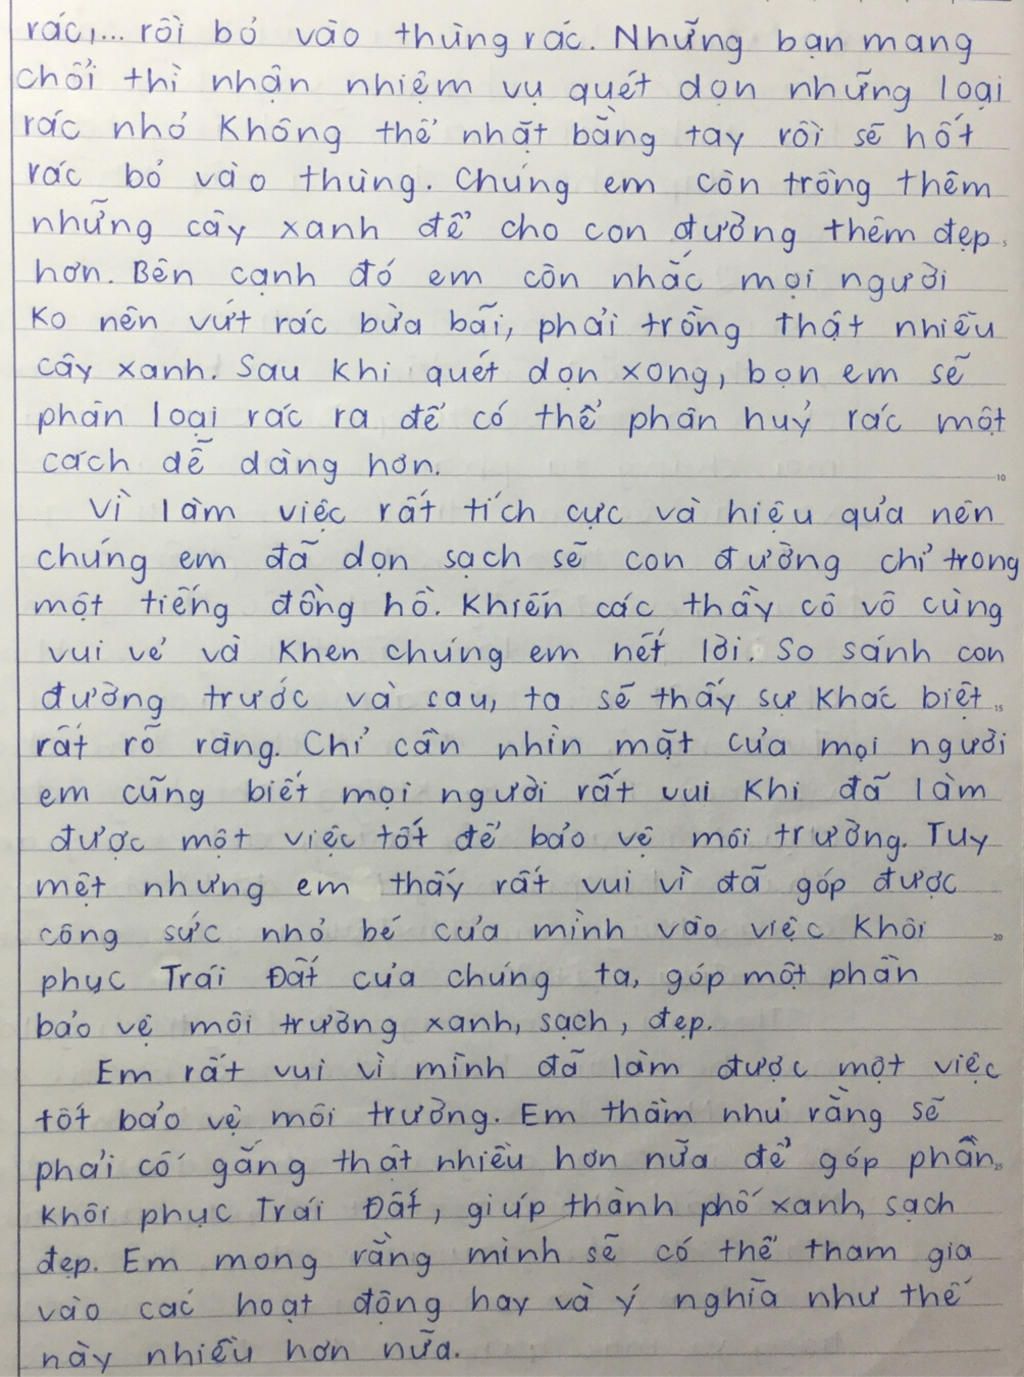 rác,... rồi bỏ vào thùng rác. Những bạn mang
chổi thì nhận nhiệm vụ quét dọn những loại
rác nhỏ không thể nhặt bằng tay rồi sẽ hốt
rác bỏ vào thùng. Chúng em còn trồng thêm
những cây xanh để cho con đường thêm đẹp
hơn. Bên cạnh đó em còn nhắc mọi người
ko nên vứt rác bừa bãi, phải trồng thật nhiều
cây xanh. Sau khi quét dọn xong, bọn em sẽ
phân loại rác ra để có thể phân huỷ rác một
cách dễ dàng hơn.
10
Vì làm việc rất tích cực và hiệu qủa nên
chúng em đã dọn sạch sẽ con đường chỉ trong
một tiếng đồng hồ. Khiến các thầy cô vô cùng
vui vẻ và khen chúng em hết lời. So sánh con
đường trước và sau, ta sẽ thấy sự khác biệt
15
rất rõ ràng. Chỉ cần nhìn mặt của mọi người
em cũng biết mọi người rất vui khi đã làm
được một việc tốt để bảo vệ môi trường. Tuy
mệt nhưng em thấy rất vui vì đã góp được
công sức nhỏ bé của mình vào việc khôi
20
phục Trái Đất của chúng ta, góp một phần
bảo vệ môi trường xanh, sạch, đẹp.
Em rất vui vì mình đã làm được một việc
tốt bảo vệ môi trường. Em thầm nhủ rằng sẽ
phải cố gắng thật nhiều hơn nữa để góp phần
25
khôi phục Trái Đất, giúp thành phố xanh, sạch
đẹp. Em mong rằng mình sẽ có thể tham gia
vào các hoạt động hay và ý nghĩa như thế
này nhiều hơn nữa.